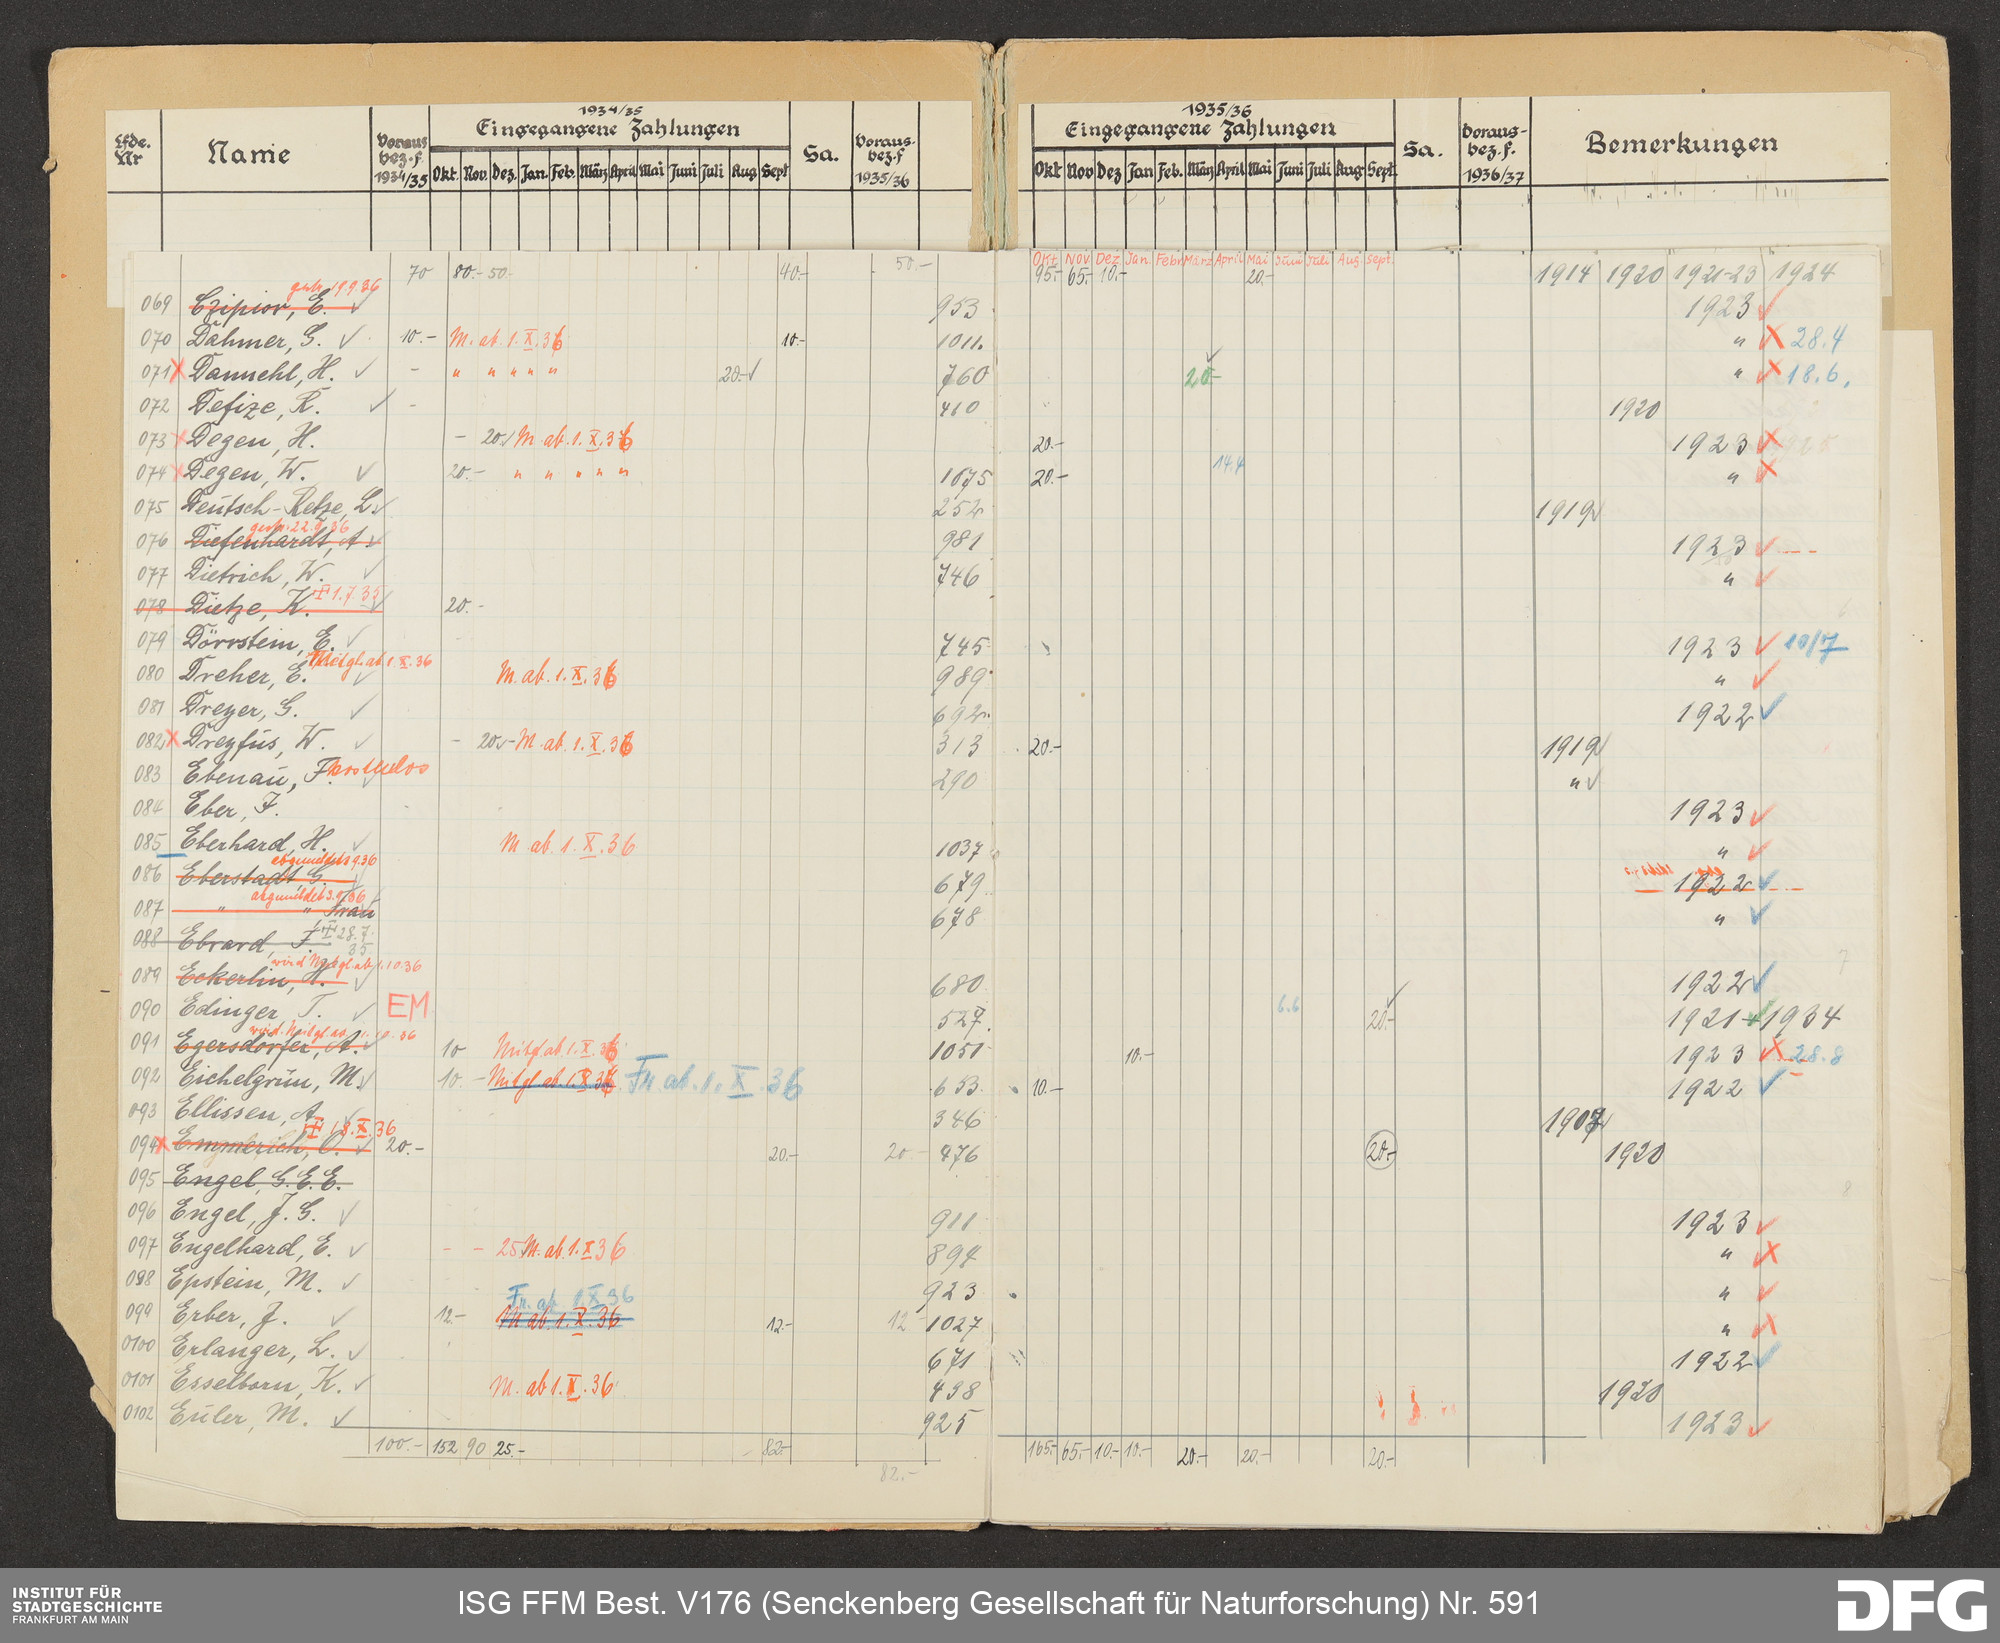 Lfde. Nr Name Voraus bez. f. 1934/35 1934/35 Eingegangene Zahlungen Okt. Nov. Dez. Jan. Feb. März April Mai Juni Juli Aug Sept Sa. Voraus- bez. f 1935/36
1935/36 Eingegangene Zahlungen Okt Nov Dez Jan Feb. März April Mai Juni Juli Aug Sept. Sa. Voraus- bez. f. 1936/37 Bemerkungen
Okt Nov Dez Jan. Febr März April Mai Juni Juli Aug. Sept.
70 80.- 50.- 40.- 50.- 95.- 65.- 10.- 20.- 1914 1920 1921-23 1924
gestr. 19.9.36
069 Czipior, E. 953 1923
070 Dahmer, G. 10.- M. ab. 1. X. 36 10.- 1011. " 28.4
071 Dannehl, H. - " " " " " 20.- 760 20.- " 18.6.
072 Defize, R. - 410 1920
073 Degen, H. - 20. M. ab. 1. X. 36 20.- 1923
074 Degen, W. 20.- " " " " " 1075 20.- 14.4 "
075 Deutsch-Retze, L. 252 1919
gestr. 22.9.36
076 Diefenhardt, A. 981 1923
077 Dietrich, W. 746 "
078 Dietze, K. 1.7.35 20.-
079 Dörrstein, E. 745 1923 10/7
Mitgl. ab 1. X. 36
080 Dreher, E. M. ab. 1. X. 36 989 "
081 Dreyer, G. 692. 1922
082 Dreyfus, W. - 20.- M. ab. 1. X. 36 313 20.- 1919
083 Ebenau, F. kostenlos 290 "
084 Eber, F. 1923
085 Eberhard, H. M. ab. 1. X. 36 1037 "
abgemeldet 3.9.36
086 Eberstadt G. 679 1922
abgemeldet 3.9.36
087 " " Frau 678 "
088 Ebrard, F. 28.7. 35
wird Mitgl. ab 1.10.36
089 Eckerlin, H. 680 1922
090 Edinger T. EM 527. 6.6 20.- 1921 1934
wird Mitgl. ab 1.10.36
091 Egersdorfer, A. 10 Mitgl. ab 1. X. 36 1051 10.- 1923 28.8
092 Eichelgrün, M. 10.- Mitgl. ab. 1. X. 36 Fr. ab. 1. X. 36 653. 10.- 1922
093 Ellissen, A. 346 1907
18. X. 36
094 Emmerich, O. 20.- 20.- 20.- 476 20.- 1920
095 Engel, G. E. E.
096 Engel, J. G. 911 1923
097 Engelhard, E. - - 25 M. ab. 1. X 36 894 "
098 Epstein, M. 923 "
Fr. ab. 1. X 36
099 Erber, J. 12.- M. ab. 1. X. 36 12.- 12 1027 "
0100 Erlanger, L. 671 1922
0101 Esselborn, K. M. ab 1. X. 36 498 1920
0102 Euler, M. 925 1923
100.- 152 90 25.- 82.- 165.- 65.- 10.- 10.- 20.- 20.- 20.-
82.-
INSTITUT FÜR STADTGESCHICHTE FRANKFURT AM MAIN
ISG FFM Best. V176 (Senckenberg Gesellschaft für Naturforschung) Nr. 591
DFG